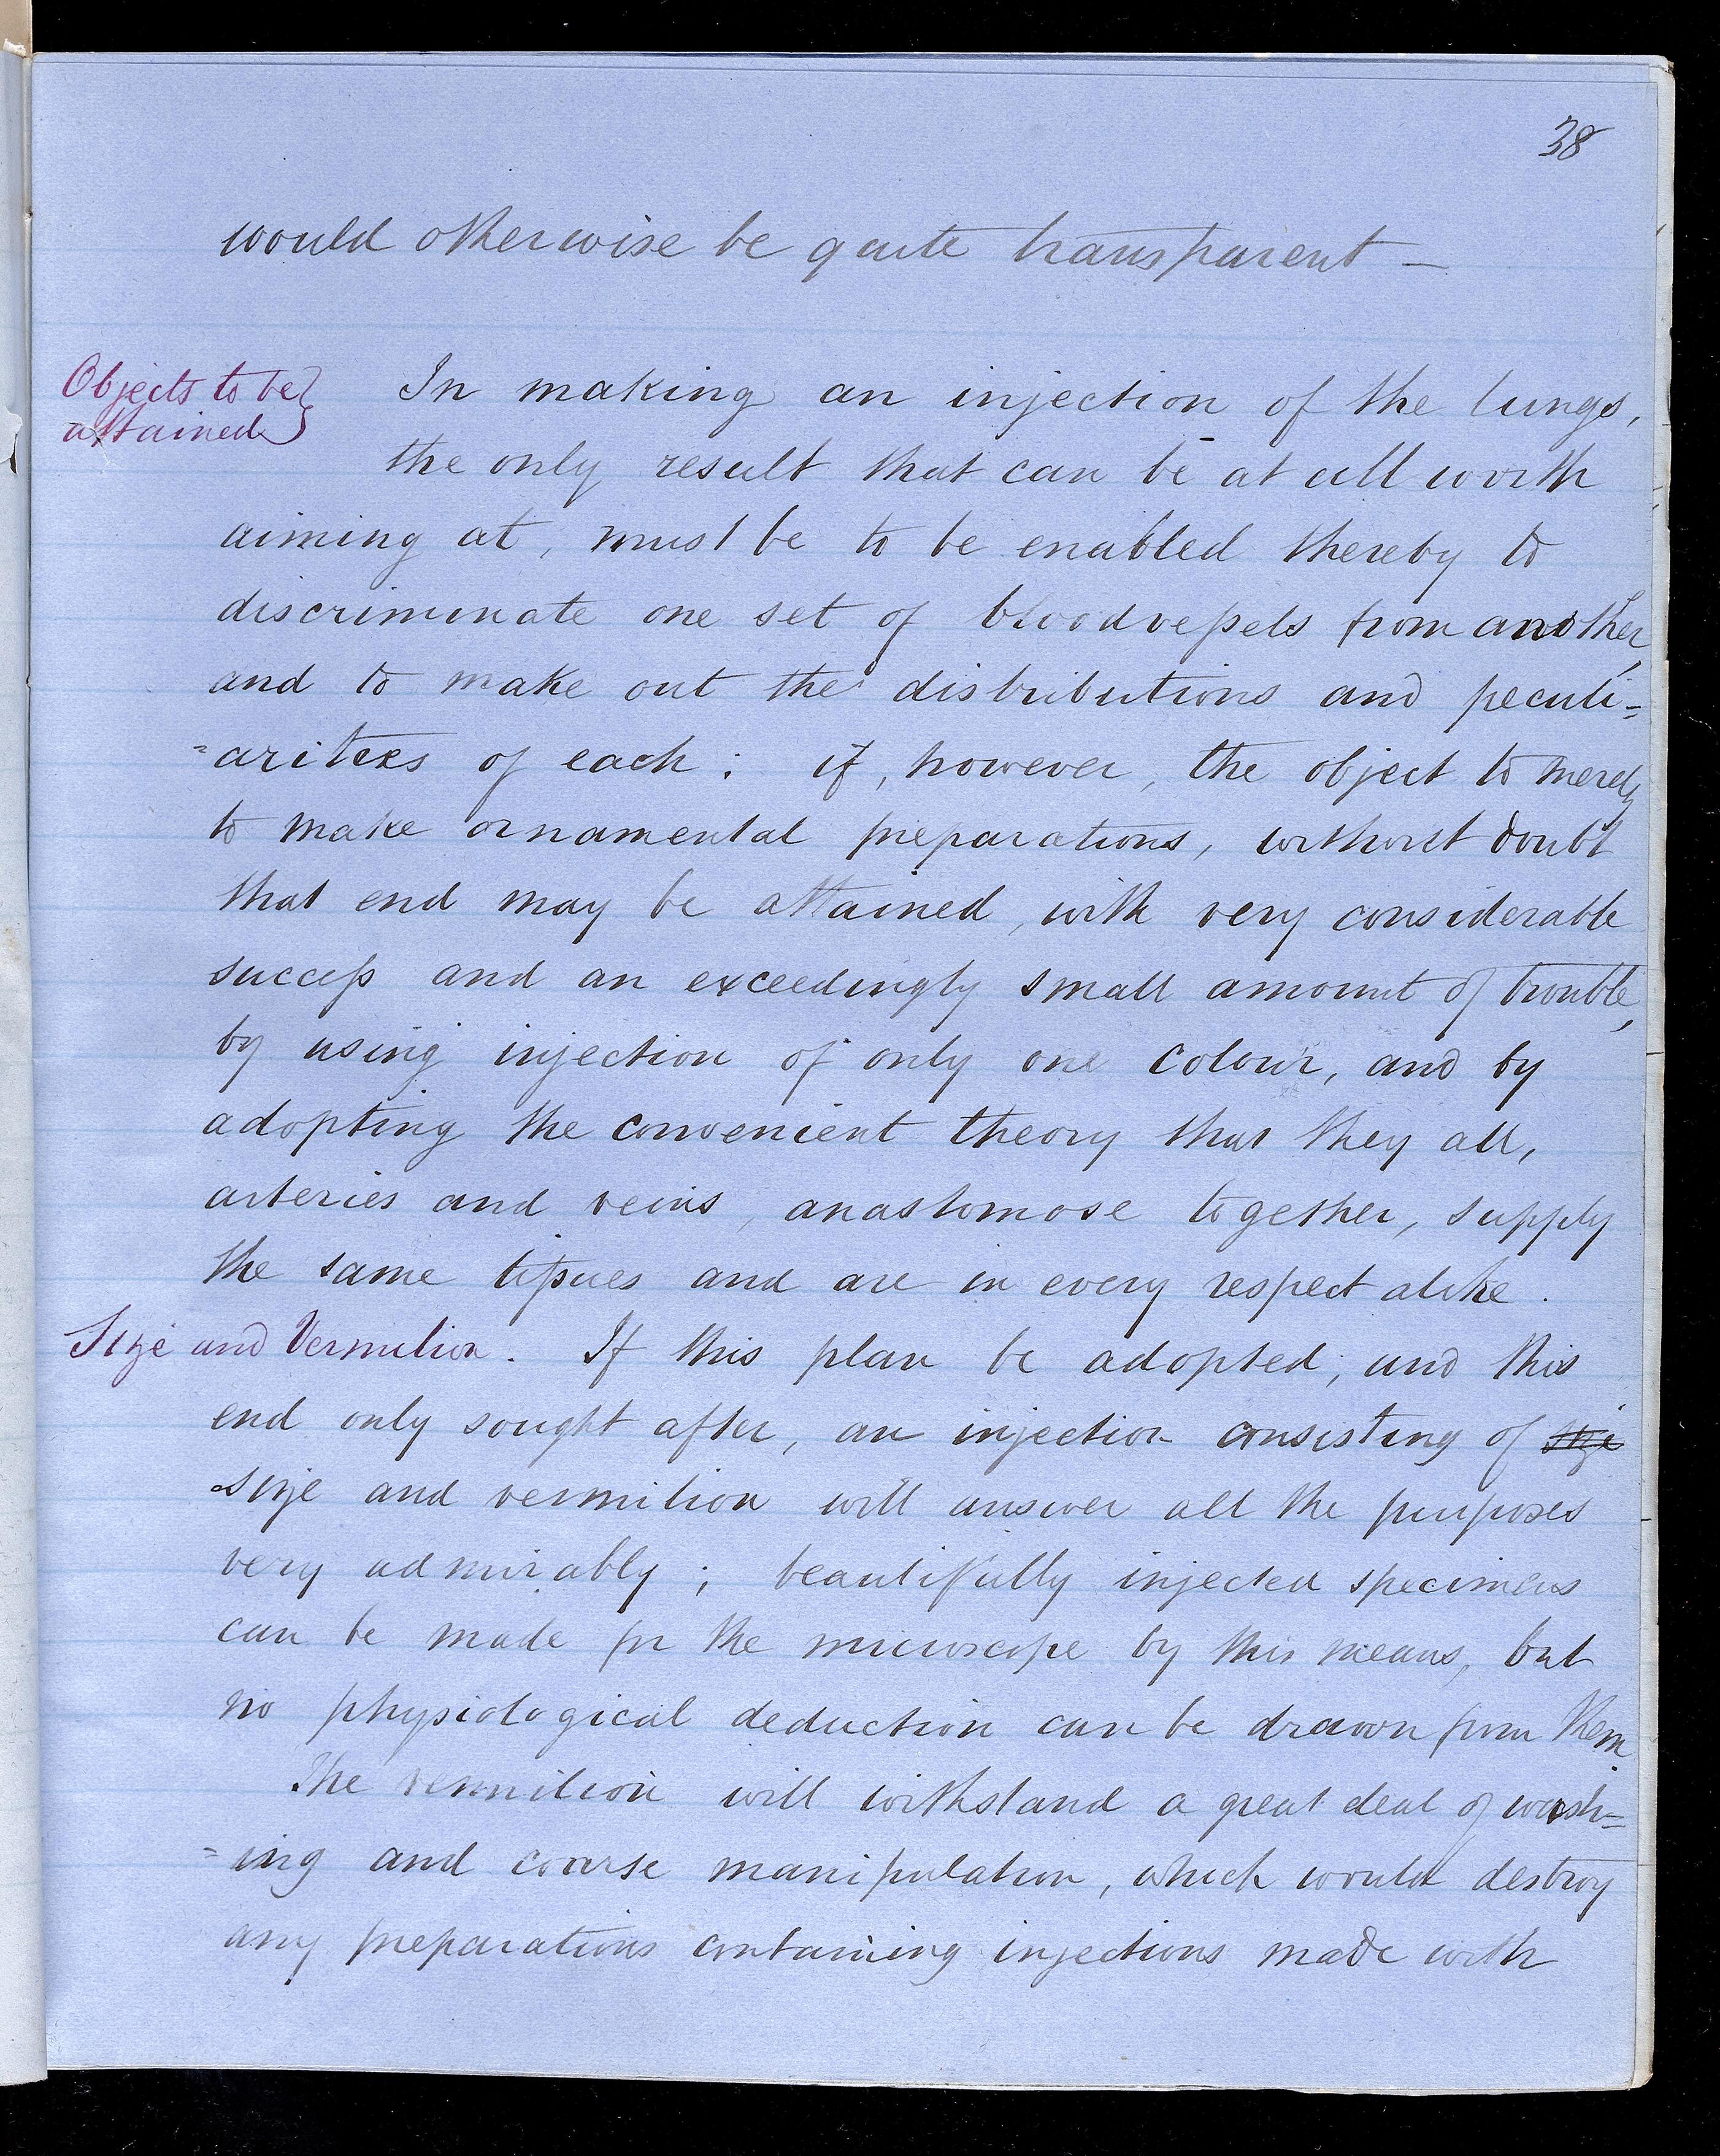 38
would otherwise be quite transparent —
Objects to be
attained
In making an injection of the lungs,
the only result that can be at all worth
aiming at, must be to be enabled thereby to
discriminate one set of bloodvessels from another,
and to make out the distributions and peculi=
=arities of each : if, however, the object to merely
to make ornamental preparations, without doubt
that end may be attained, with very considerable
success and an exceedingly small amount of trouble,
by using injection of only one colour, and by
adopting the convenient theory that they all,
arteries and veins, anastomose together, supply
the same tissues and are in every respect alike.
Size and Vermilion. If this plan be adopted, and this
end only sought after, an injection consisting of size
size and vermilion will answer all the purposes
very admirably ; beautifully injected specimens
can be made for the microscope by this means, but
no physiological deduction can be drawn from them.
The vermilion will withstand a great deal of wash=
=ing and coarse manipulation, which would destroy
any preparations containing injections made with